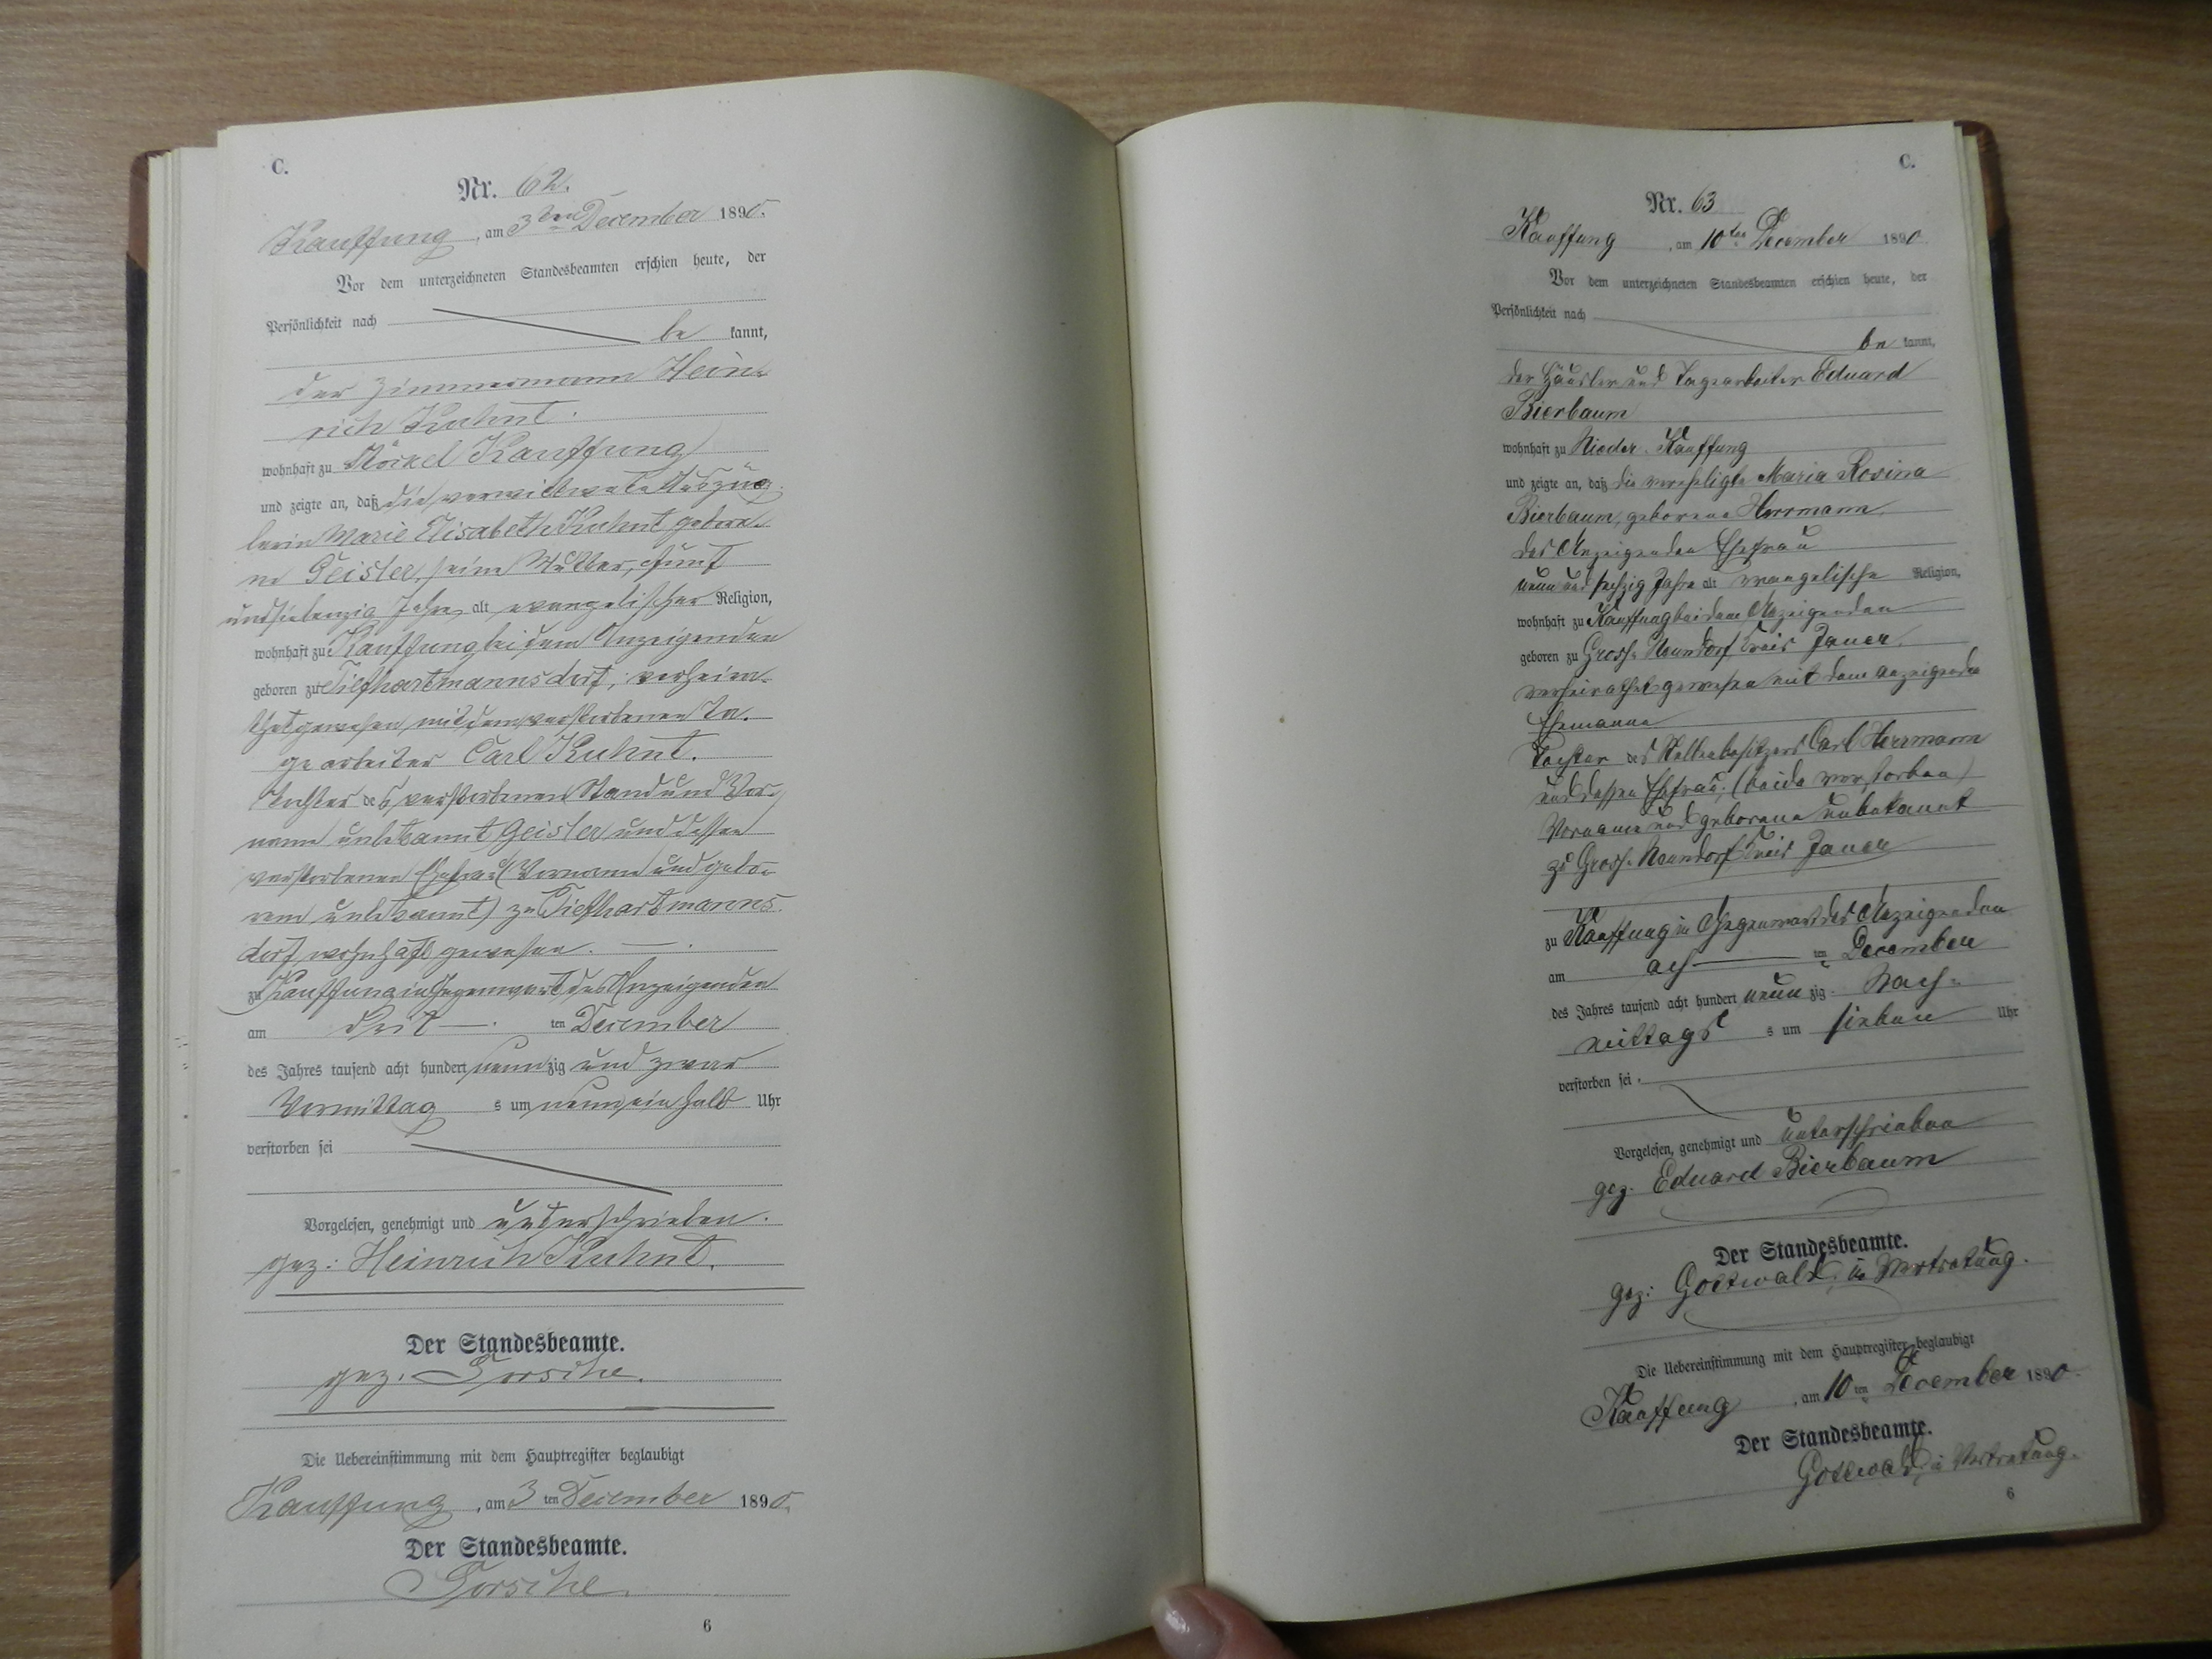 C.
Nr. 62.
Kauffung, am 3ten December 1890.
Vor dem unterzeichneten Standesbeamten erschien heute, der
Persönlichkeit nach
be kannt,
der Zimmermann Hein-
rich Kuhnt.
wohnhaft zu Stöckel Kauffung
und zeigte an, daß die verwittwete Auszüg-
lerin Marie Elisabeth Kuhnt gebore-
ne Geisler, seine Mutter, fünf
undsiebenzig Jahre alt, evangelischer Religion,
wohnhaft zu Kauffung bei dem Anzeigenden
geboren zu Tiefhartmannsdorf, verheira-
thet gewesen mit dem verstorbenen Ta-
gearbeiter Carl Kuhnt.
Tochter des verstorbenen Stand und Vor-
name unbekannt Geisler und dessen
verstorbenen Ehefrau (Vorname und gebo-
rene unbekannt) zu Tiefhartmanns-
dorf wohnhaft gewesen.
zu Kauffung in Gegenwart des Anzeigenden
am drit ten December
des Jahres tausend acht hundert neun zig und zwar
Vormittag s um neun ein halb Uhr
verstorben sei
Vorgelesen, genehmigt und unterschrieben.
gez: Heinrich Kuhnt.
Der Standesbeamte.
gez. Forsche.
Die Uebereinstimmung mit dem Hauptregister beglaubigt
Kauffung, am 3 ten December 1890.
Der Standesbeamte.
Forsche.
6
C.
Nr. 63
Kauffung, am 10ten December 1890.
Vor dem unterzeichneten Standesbeamten erschien heute, der
Persönlichkeit nach
be kannt,
der Häusler und Tagearbeiter Eduard
Bierbaum
wohnhaft zu Nieder-Kauffung
und zeigte an, daß die verehligte Maria Rosina
Bierbaum, geborene Herrmann
des Anzeigenden Ehefrau
neun und sechzig Jahre alt evangelische Religion,
wohnhaft zu Kauffung bei dem Anzeigenden
geboren zu Gross-Neundorf Kreis Jauer
verheirathet gewesen mit dem anzeigenden
Ehemanne
Tochter des Stellenbesitzers Carl Herrmann
und dessen Ehefrau, (beide verstorben)
Vorname und geborene unbekannt
zu Gross-Neundorf Kreis Jauer
zu Kauffung in Gegenwart des Anzeigenden
am ach ten December
des Jahres tausend acht hundert neun zig Nach-
mittags s um sieben Uhr
verstorben sei.
Vorgelesen, genehmigt und unterschrieben
gez. Eduard Bierbaum
Der Standesbeamte.
gez: Gottwald, in Vertretung.
Die Uebereinstimmung mit dem Hauptregister beglaubigt
Kauffung, am 10 ten December 1890.
Der Standesbeamte.
Gottwald, in Vertretung.
6